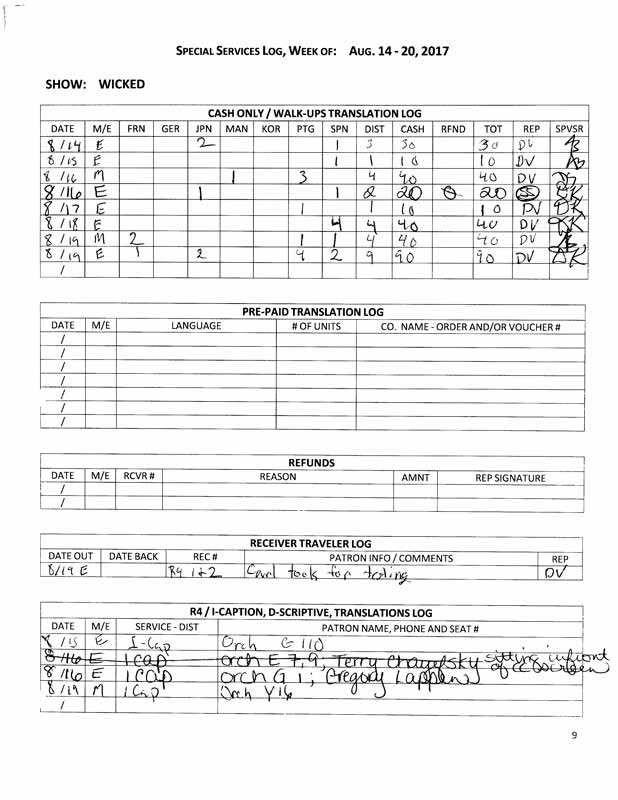 SPECIAL SERVICES LOG, WEEK OF: AUG. 14 - 20, 2017
SHOW: WICKED
CASH ONLY / WALK-UPS TRANSLATION LOG
DATE M/E FRN GER JPN MAN KOR PTG SPN DIST CASH RFND TOT REP SPVSR
8/14 E 2 1 3 30 30 DV
8/15 E 1 1 10 10 DV
8/16 M 1 3 4 40 40 DV
8/16 E 1 1 2 20 0 20
8/17 E 1 1 10 10 DV
8/18 E 4 4 40 40 DV
8/19 M 2 1 1 4 40 40 DV
8/19 E 1 2 4 2 9 90 90 DV
/
PRE-PAID TRANSLATION LOG
DATE M/E LANGUAGE # OF UNITS CO. NAME - ORDER AND/OR VOUCHER #
/
/
/
/
/
/
/
REFUNDS
DATE M/E RCVR # REASON AMNT REP SIGNATURE
/
/
RECEIVER TRAVELER LOG
DATE OUT DATE BACK REC # PATRON INFO / COMMENTS REP
8/19 E R4 1+2 Carl took for testing DV
R4 / I-CAPTION, D-SCRIPTIVE, TRANSLATIONS LOG
DATE M/E SERVICE - DIST PATRON NAME, PHONE AND SEAT #
8/15 E I-Cap Orch G 110
8/16 E I CAP Orch E 7,9, Terry sitting infront of CC screen
8/16 E I CAP Orch G 1; Gregory
8/19 M I Cap Orch Y16
/
9